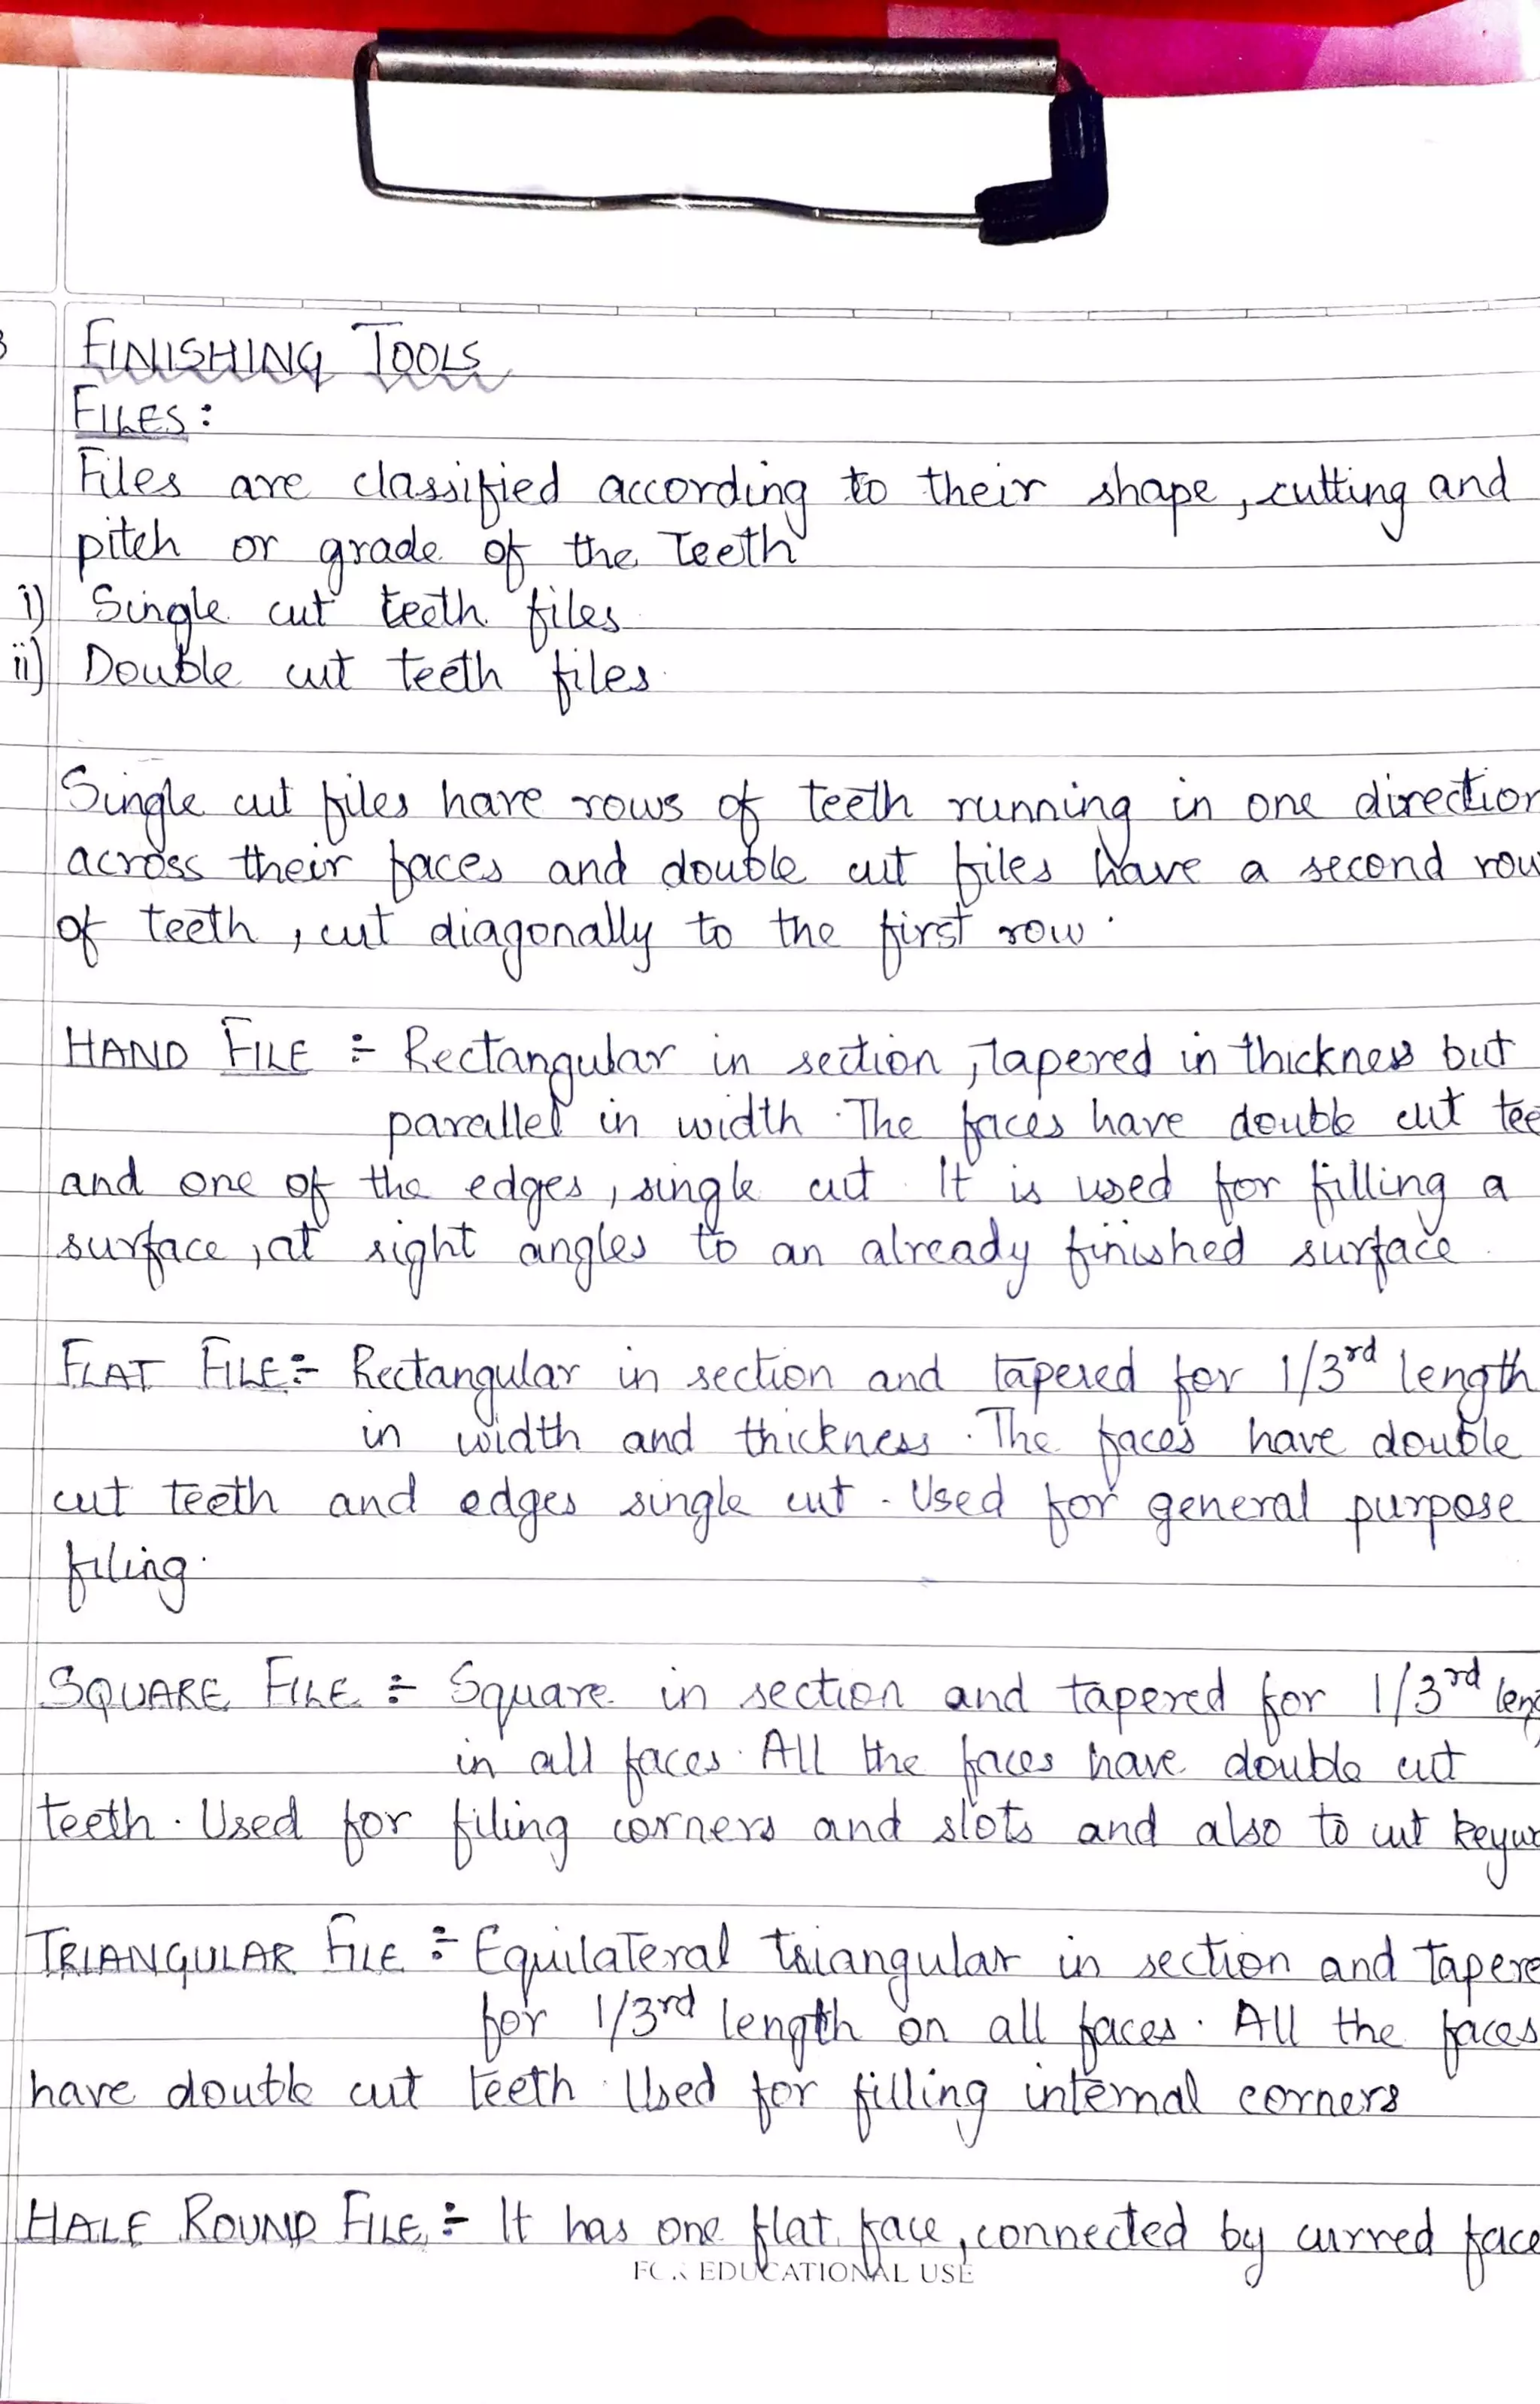 FINISHING TOOLS
FILES:
Files are classified according to their shape, cutting and
pitch or grade of the Teeth
i) Single cut teeth files
ii) Double cut teeth files.
Single cut files have rows of teeth running in one direction
across their faces and double cut files have a second row
of teeth, cut diagonally to the first row.
HAND FILE :- Rectangular in section, tapered in thickness but
parallel in width. The faces have double cut tee
and one of the edges, single cut. It is used for filling a
surface, at right angles to an already finished surface.
FLAT FILE:- Rectangular in section and tapered for 1/3rd length
in width and thickness. The faces have double
cut teeth and edges single cut. Used for general purpose
filing.
SQUARE FILE :- Square in section and tapered for 1/3rd leng
in all faces. All the faces have double cut
teeth. Used for filing corners and slots and also to cut keyw
TRIANGULAR FILE :- Equilateral triangular in section and tapere
for 1/3rd length on all faces. All the faces
have double cut teeth. Used for filling internal corners
HALF ROUND FILE :- It has one flat face, connected by curved face
FOR EDUCATIONAL USE